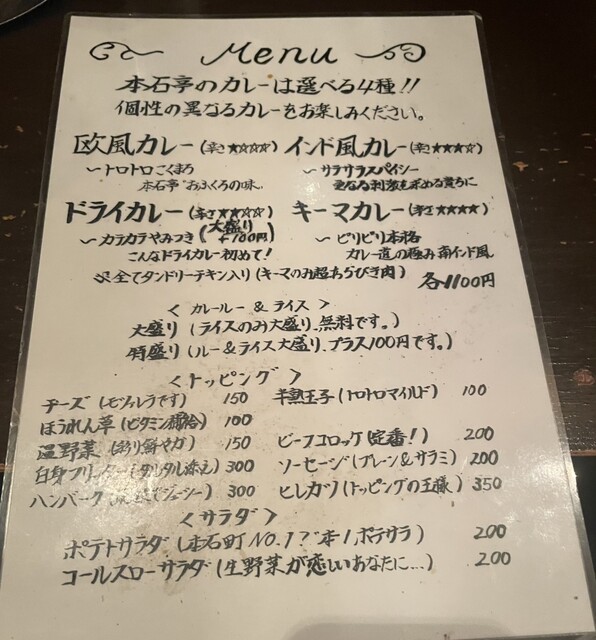 Menu
本石亭のカレーは選べる4種!!
個性の異なるカレーをお楽しみください。
欧風カレー(辛さ★☆☆☆) インド風カレー(辛さ★★★☆)
~トロトロこくまろ ~サラサラスパイシー
本石亭"おふくろの味" 更なる刺激を求める貴方に
ドライカレー(辛さ★★☆☆) (大盛り+100円) キーマカレー(辛さ★★★★)
~カラカラやみつき ~ピリピリ本格
こんなドライカレー初めて! カレー道の極み南インド風
※全てタンドリーチキン入り(キーマのみ超あらびき肉) 各1100円
<カレールー&ライス>
大盛り(ライスのみ大盛り、無料です。)
特盛り(ルー&ライス大盛り、プラス100円です。)
<トッピング>
チーズ(モツァレラです) 150 半熟玉子(トロトロマイルド) 100
ほうれん草(ビタミン補給) 100
温野菜(彩り鮮やか) 150 ビーフコロッケ(定番!) 200
白身フリッター(タルタル添え) 300 ソーセージ(プレーン&サラミ) 200
ハンバーグ ジューシー) 300 ヒレカツ(トッピングの王様) 350
<サラダ>
ポテトサラダ(本石町NO.1?日本1ポテサラ) 200
コールスローサラダ(生野菜が恋しいあなたに...) 200